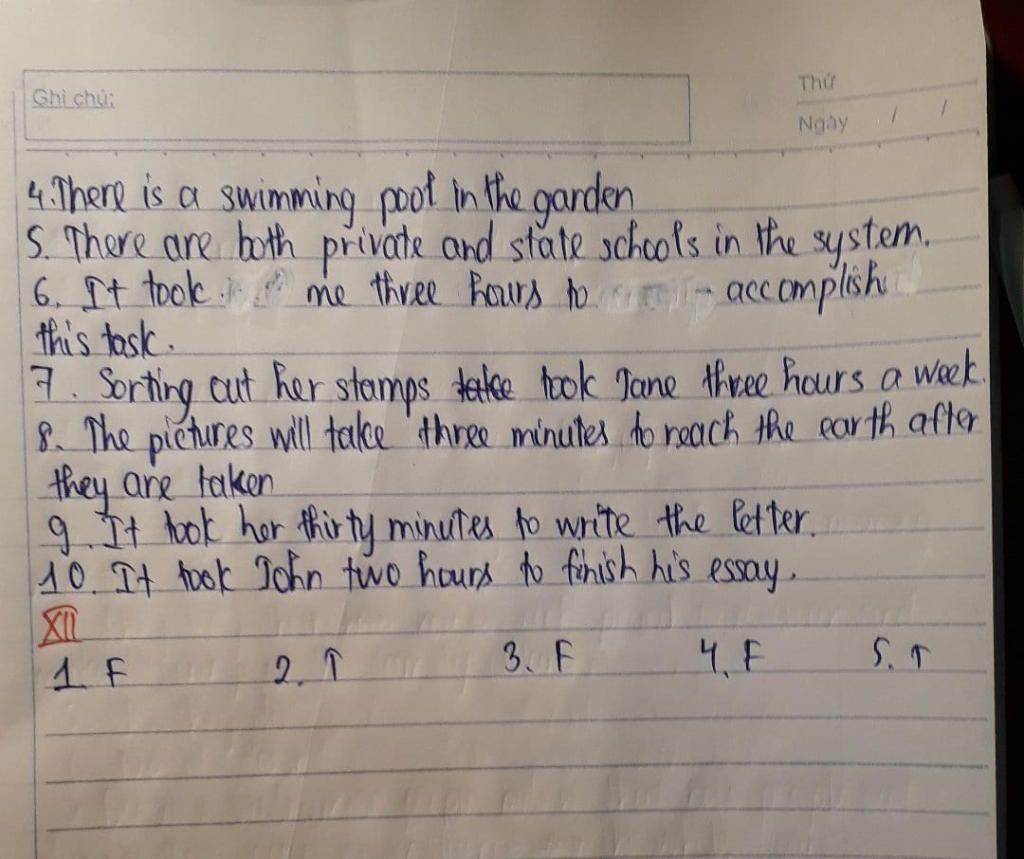 Ghi chú:
Thứ
Ngày / /
4. There is a swimming pool in the garden
5. There are both private and state schools in the system.
6. It took me three hours to accomplish
this task.
7. Sorting out her stamps take took Jane three hours a week.
8. The pictures will take three minutes to reach the earth after
they are taken
9. It took her thirty minutes to write the letter.
10. It took John two hours to finish his essay.
XII
1. F 2. T 3. F 4. F 5. T